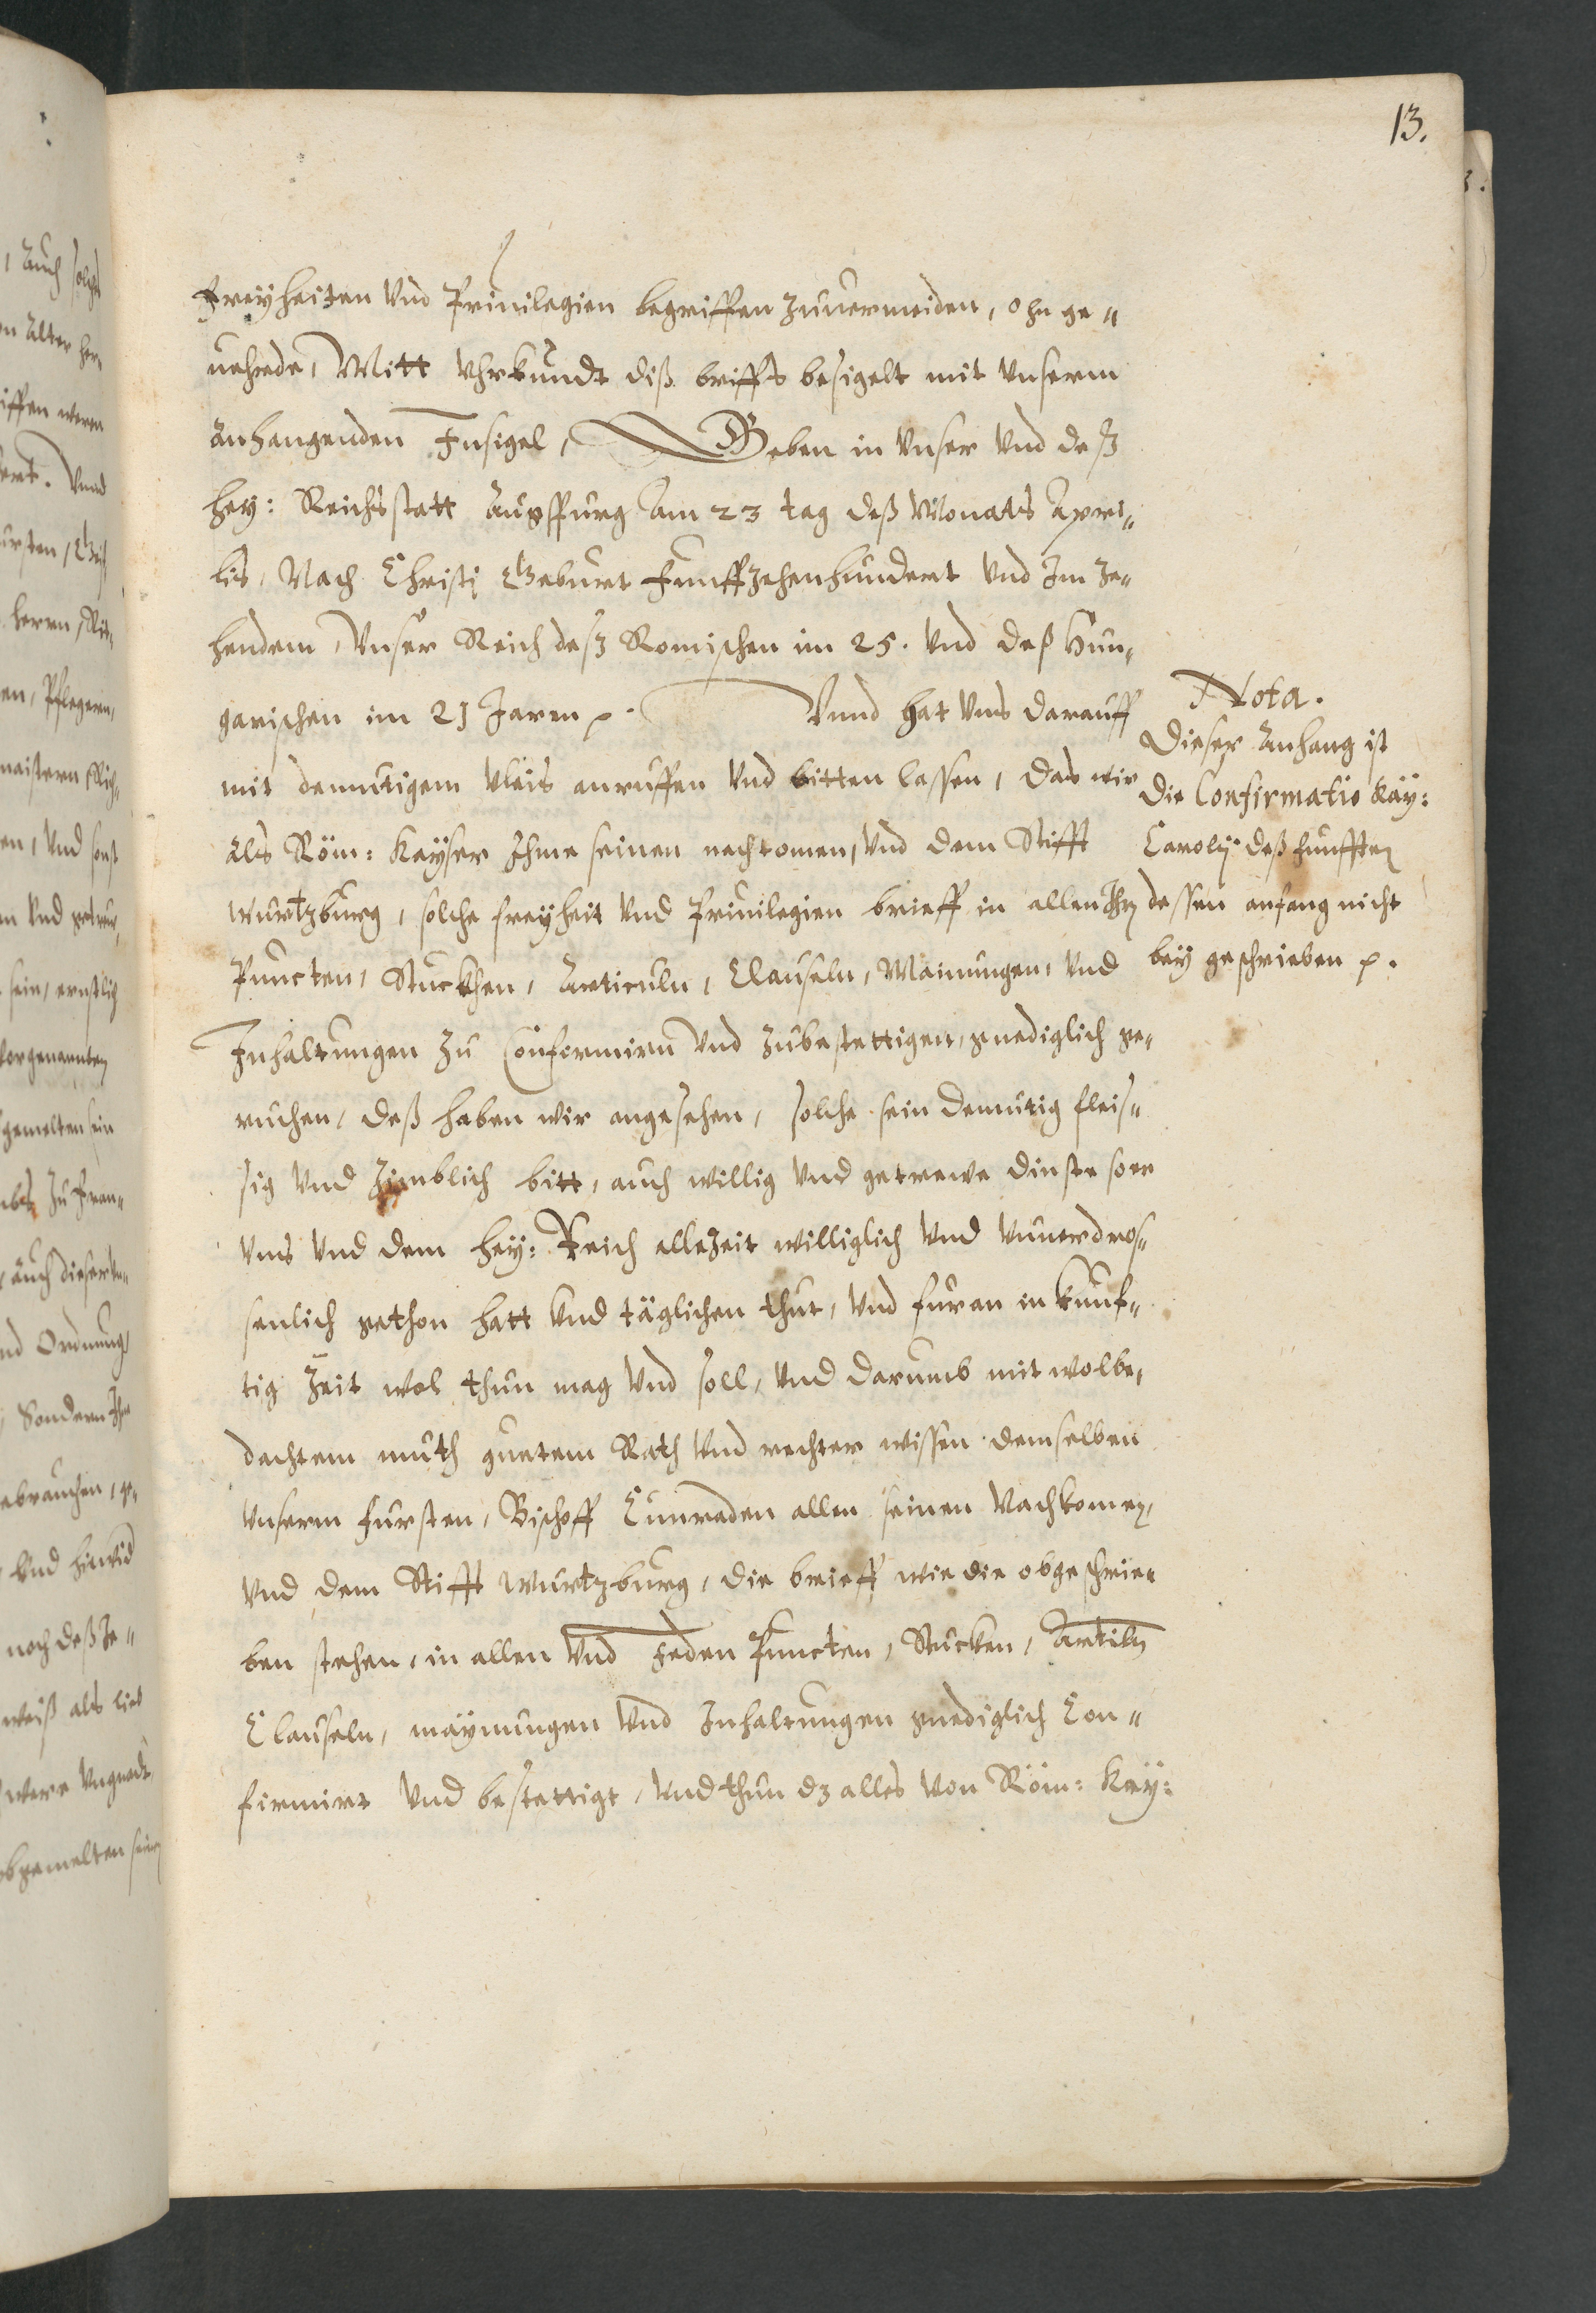 13.
Freyheiten Vnd Priuilegien begriffen zuuermeiden, ohn ge„
uehrde, Mitt Vhrkundt diß briffs besigelt mit Vnserm
Anhangenden Insigel, Geben in Vnser Vnd deß
Hey: Reichsstatt Augspurg Am 23 tag deß Monats Apri„
lis, Nach Christi Geburt Funffzehenhundert Vnd Im Ze„
henden, Vnser Reich deß Romischen im 25. Vnd deß Hun„
garischen im 21 Jaren p. Vnnd hat Vns darauff
mit demutigem Vleis anruffen Vnd bitten lassen, das wir
als Röm: Kayser Ihme seinen nachkomen, Vnd dem Stifft
Wurtzburg, solche freyheit Vnd Priuilegien brieff in allen Ihrn
Puncten, Stuckhen, Articuln, Clauseln, Mainungen, Vnd
Inhaltungen Zu Confirmirn Vnd Zubestettigen, gnediglich ge„
ruchen, deß haben wir angesehen, solche sein demutig fleis„
sig Vnd Zimblich bitt, auch willig Vnd getrewe dinste so er
Vns Vnd dem Hey: Reich alleZeit williglich Vnd Vnuerdros„
senlich gethon hatt Vnd täglichen thut, Vnd furan in kunf„
tig Zeit wol thun mag Vnd soll, Vnd darumb mit wolbe„
dachtem muth guetem Rath Vnd rechter wissen demselben
Vnserm Fursten, Bischoff Cunraden allen seinen Nachkomen,
Vnd dem Stifft Wurtzburg, die brieff wie die obgeschrie„
ben stehen, in allen Vnd Jeden Puncten, Stucken, Articln
Clauseln, maynungen Vnd Inhaltungen gnediglich Con„
firmirt Vnd bestettigt, Vnd thun dz alles Von Röm: Kay:
Nota.
Dieser Anhang ist
die Confirmatio Kay:
Carolj deß Funfften
dessen anfang nicht
bey geschrieben p.